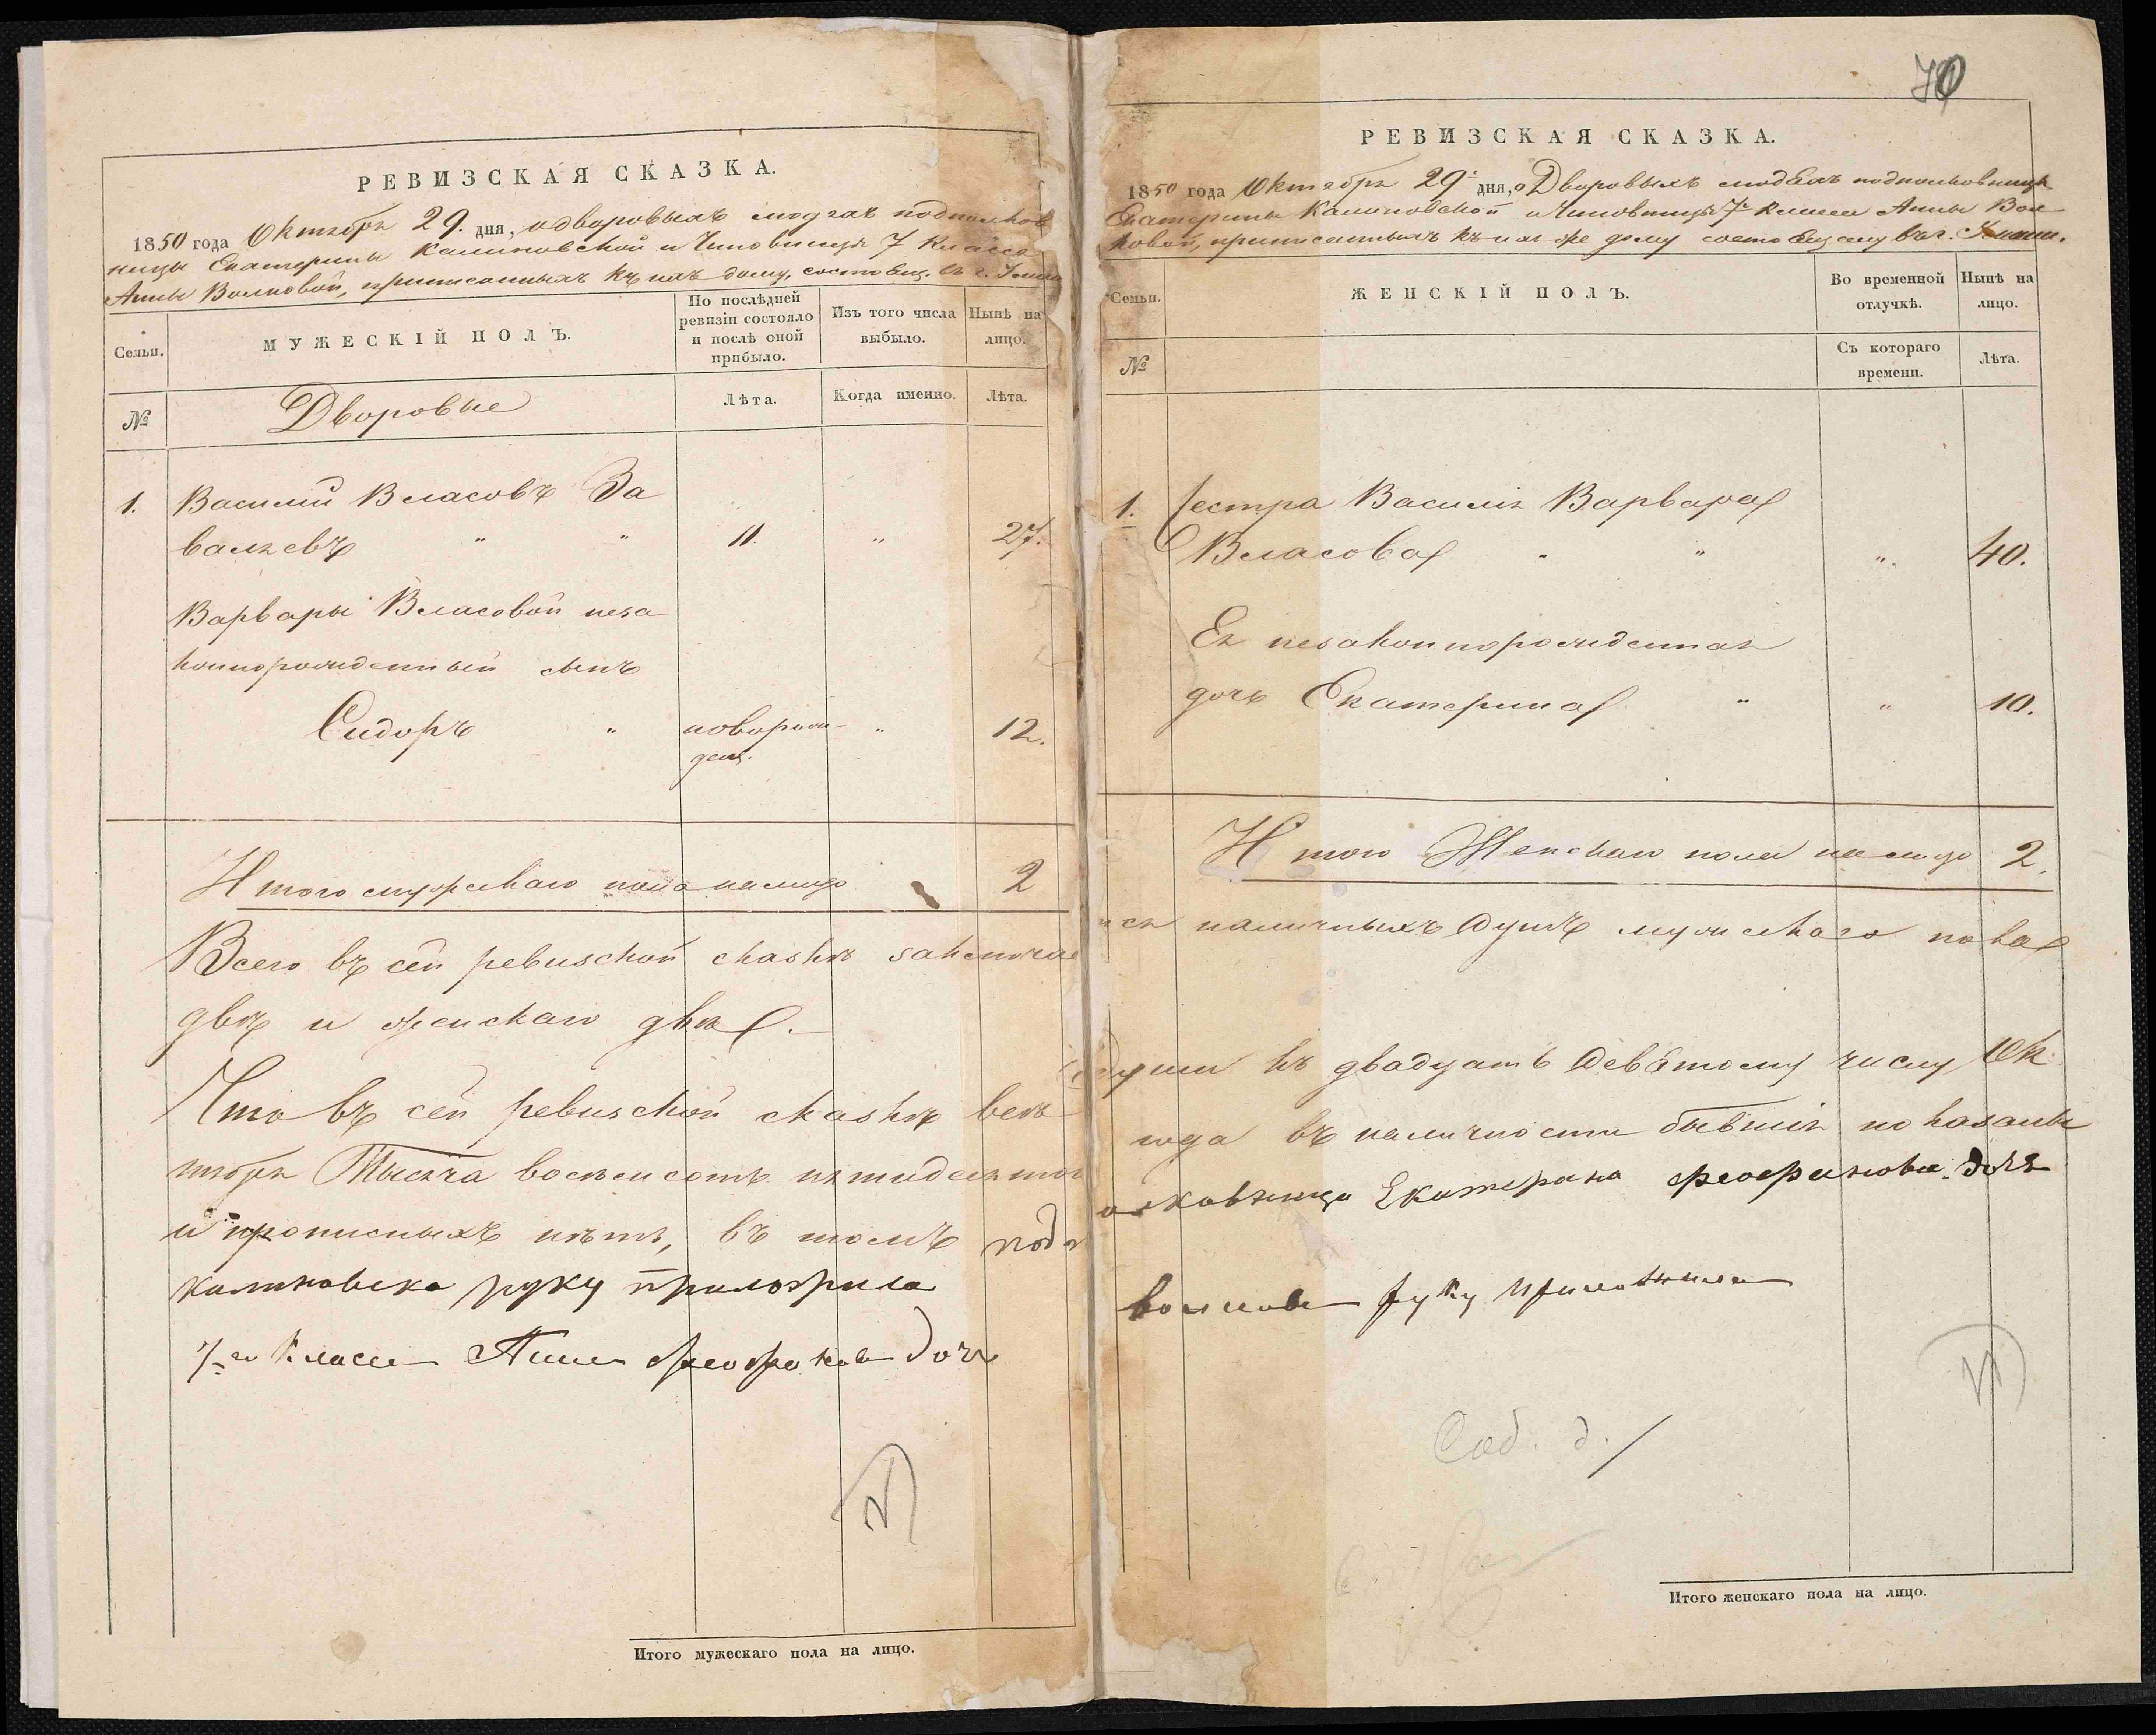 РЕВИЗСКАЯ СКАЗКА.
1850 года Октября 29. дня, о дворовыхъ людяхъ подполков
ницы Екатерины Калиновской и Чиновницы 7 класса
Анны Волковой, приписанныхъ къ ихъ дому, состоящ. въ г.
Семьи.
МУЖЕСКІЙ ПОЛЪ.
По послѣдней ревизіи состояло и послѣ оной прибыло.
Изъ того числа выбыло.
Нынѣ на лицо.
№
Дворовые
Лѣта.
Когда именно.
Лѣта.
1. Василій Власовъ За
вальевъ " " 11. " 27.
Варвары Власовой неза
коннорожденный сынъ
Сидоръ " новорож- " 12.
ден.
Итого мужскаго пола на лицо 2
Всего въ сей ревизской сказкѣ заключае
двѣ и женскаго двѣ.
Что въ сей ревизской сказкѣ всѣ
тября Тысяча восемсотъ пятидесятого
и прописныхъ нѣтъ, въ томъ подп
калиновска руку приложила
7-го Класса Анна дочь
Итого мужескаго пола на лицо.
70
РЕВИЗСКАЯ СКАЗКА.
1850 года Октября 29 дня, о Дворовыхъ людяхъ подполковницы
Екатерины Калиновской и Чиновницы 7 класса Анны Вол
ковой, приписанныхъ къ ихъ же дому состоящему въ г.
Семьи.
ЖЕНСКІЙ ПОЛЪ.
Во временной отлучкѣ.
Нынѣ на лицо.
№
Съ котораго времени.
Лѣта.
1. Сестра Василія Варвара
Власова " " " 40.
Ея незаконнорожденная
дочь Екатерина " " 10.
Итого Женскаго пола на лицо 2.
ся наличныхъ душъ мужескаго пола
души къ двадцать девятому числу Ок
года въ наличности бывшія показаны
олковница Екатерина дочь
волкова руку приложила
Итого женскаго пола на лицо.